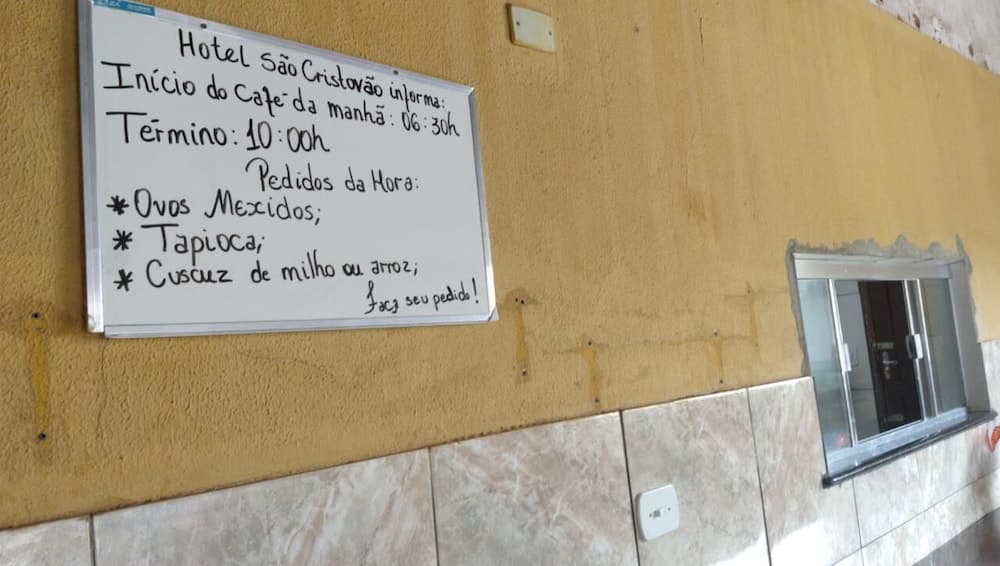 Hotel São Cristovão informa:
Início do Café da manhã: 06:30h
Término: 10:00h
Pedidos da Hora:
* Ovos Mexidos;
* Tapioca;
* Cuscuz de milho ou arroz;
faça seu pedido!